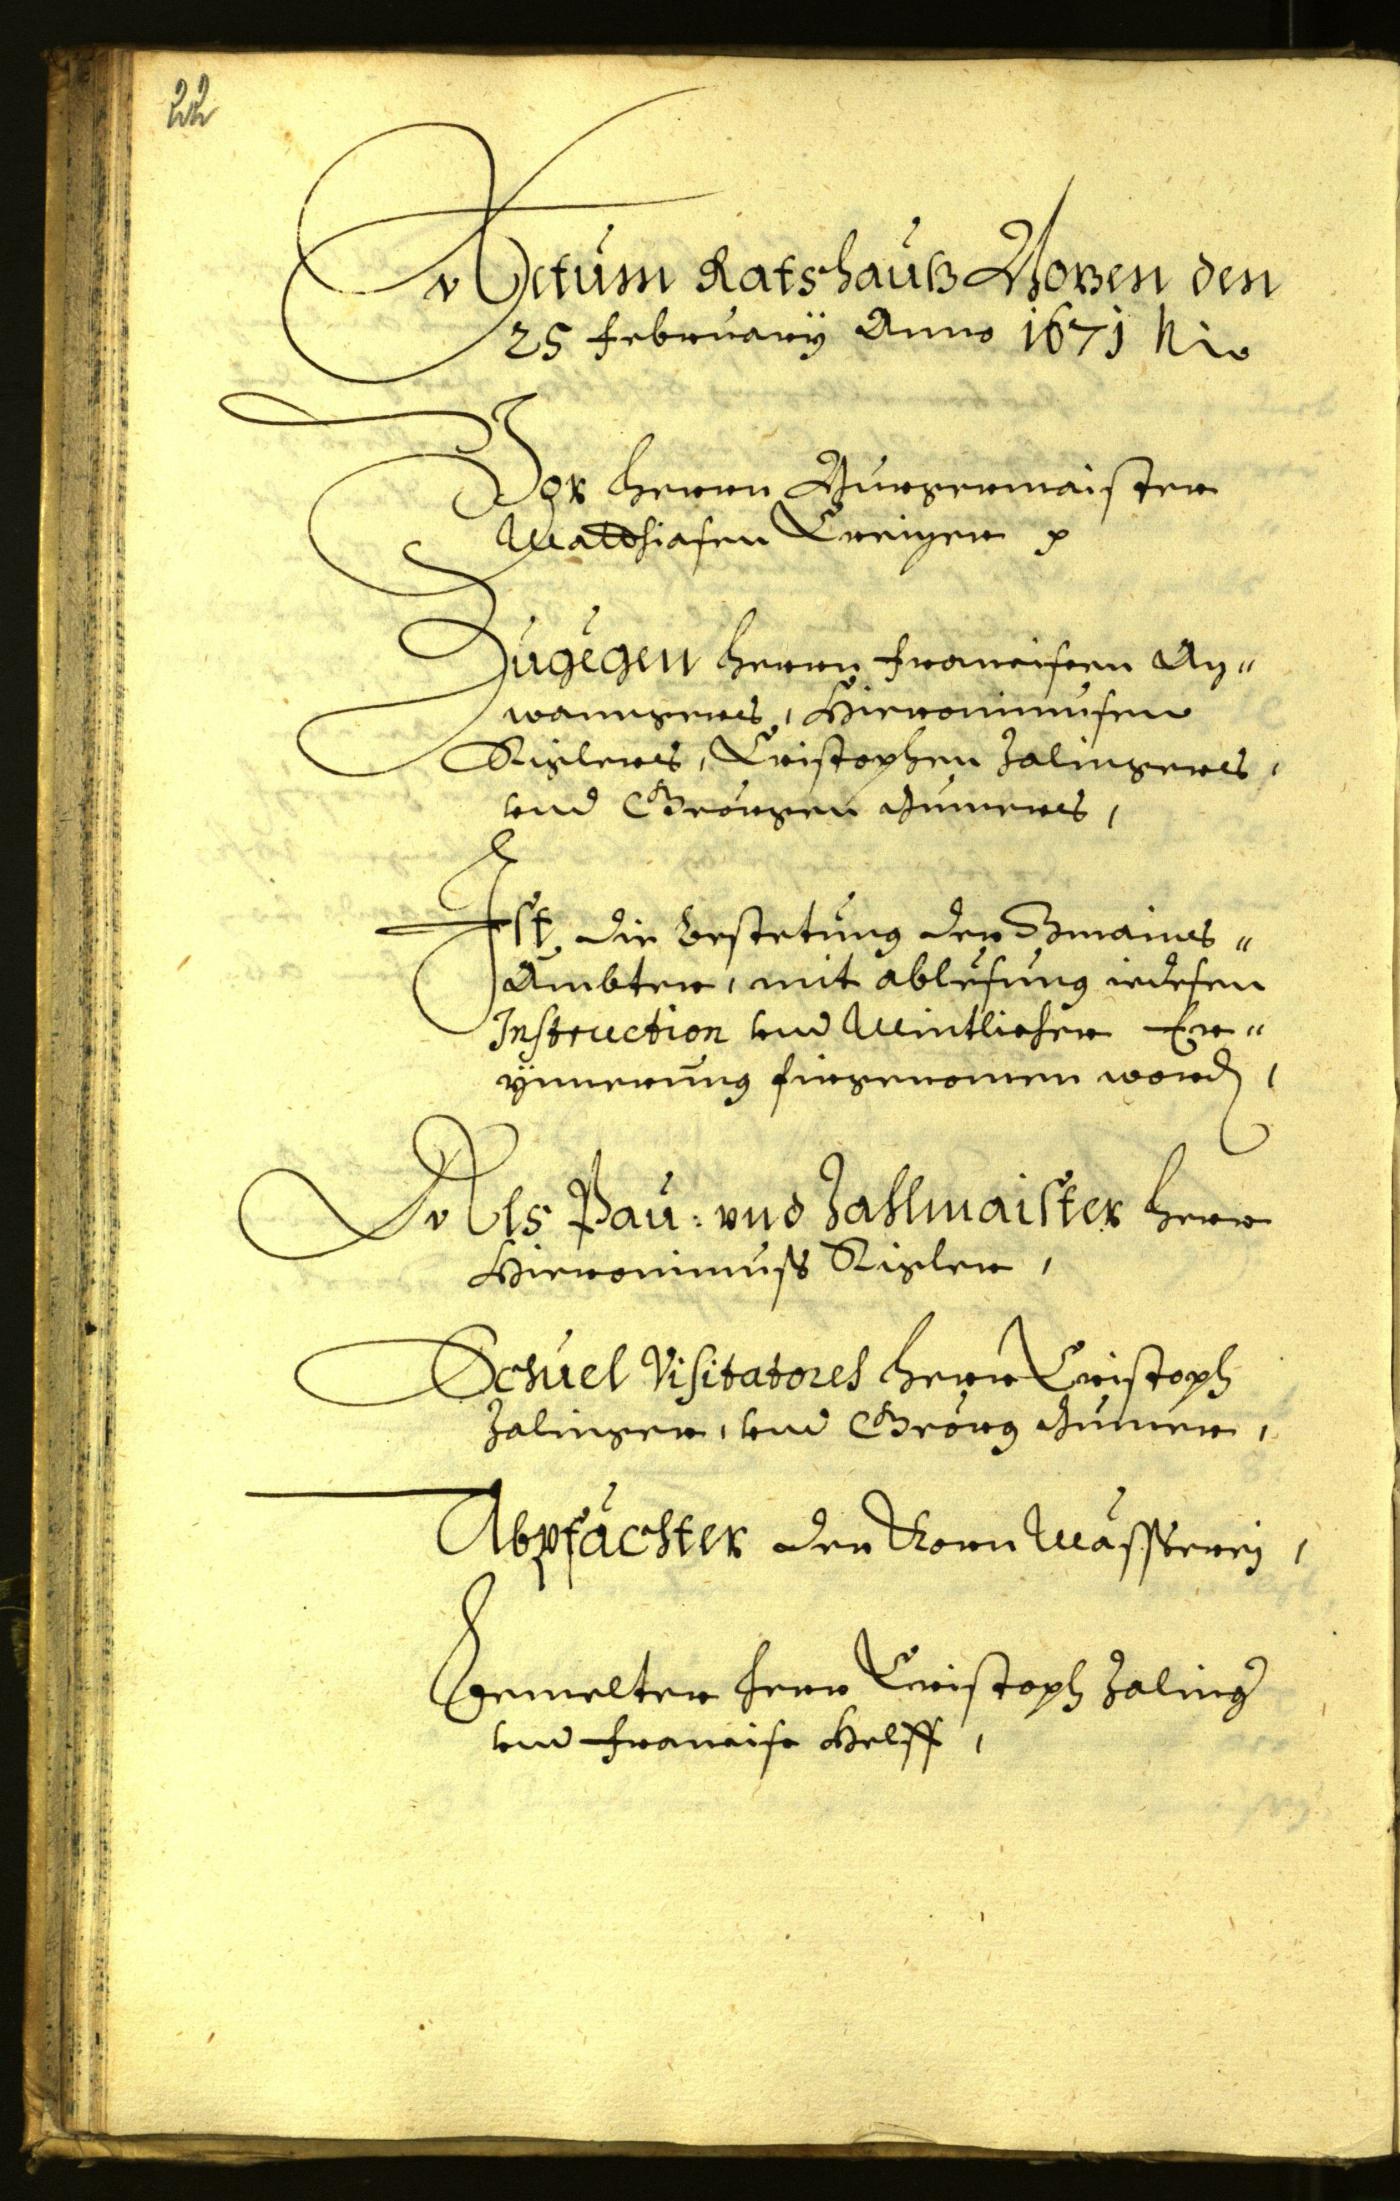 22
Actum Ratshauß Bozen den
25 february Anno 1671
Vor herrn Burgermaister
Matthiasen Creizer
Zugegen herrn francisen An„
wanngers, Hieronimusen
Rislers, Cristophen Zalingers,
und Geörgen Gumers,
Ist die bestetung der Gmains„
Ämbter, mit ablesung iedesen
Instruction und Mintlicher Er„
ynnerung firgenomen word,
Als Pau: vnd Zahlmaister herr
Hieronimuß Risler,
Schuel Visitatores herr Cristoph
Zalinger, und Geörg Gumer,
Abpfächter der Korn Mässerey,
Gemelter herr Cristoph Zaling
und francisc Helff,